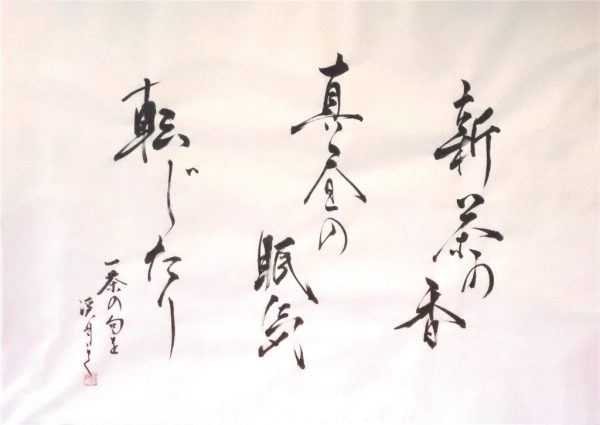 新茶の香
真昼の
眠気
転じたり
一茶の句を